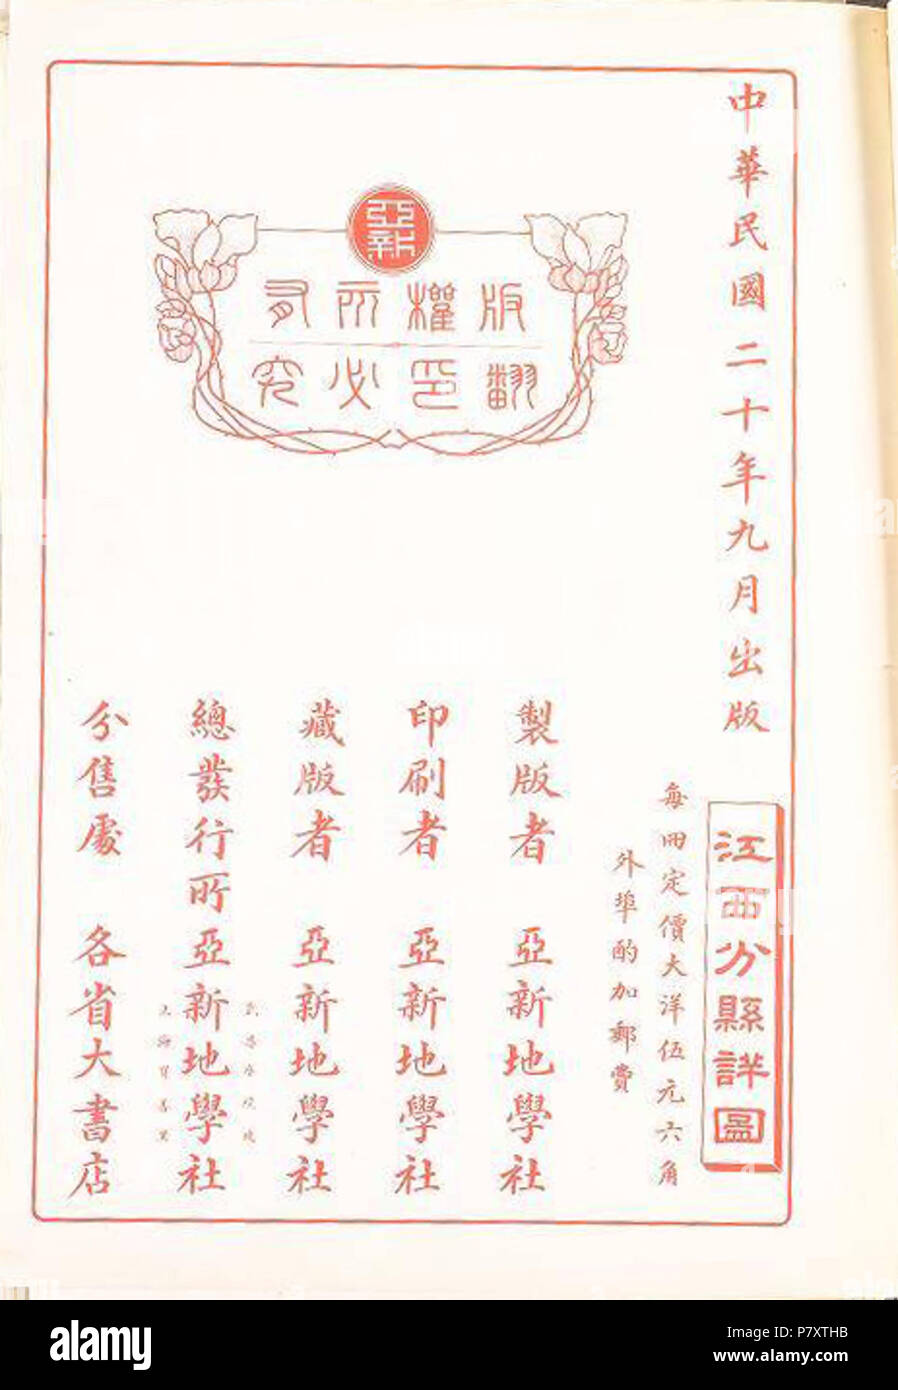 中華民國二十年九月出版
江西分縣詳圖
每冊定價大洋伍元六角
外埠酌加郵費
亞新
版權所有
翻印必究
製版者 亞新地學社
印刷者 亞新地學社
藏版者 亞新地學社
總發行所亞新地學社
分售處 各省大書店
alamy
Image ID: P7XTHB
www.alamy.com